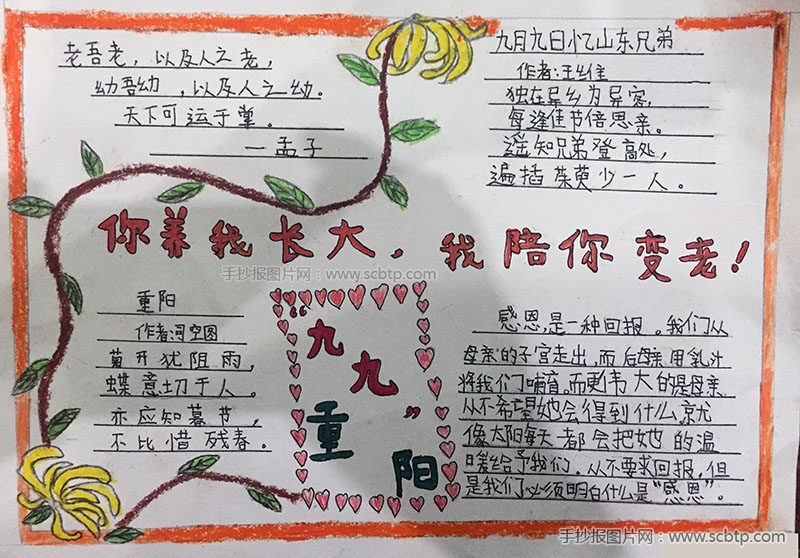 老吾老，以及人之老，
幼吾幼，以及人之幼。
天下可运于掌。
—孟子
九月九日忆山东兄弟
作者:王维
独在异乡为异客，
每逢佳节倍思亲。
遥知兄弟登高处，
遍插茱萸少一人。
你养我长大，我陪你变老！
手抄报图片网：www.scbtp.com
重阳
作者:司空图
菊开犹阻雨，
蝶意切于人。
亦应知暮节，
不比惜残春。
“九九”
重阳
感恩,是一种回报。我们从
母亲的子宫走出,而后母亲用乳汁
将我们哺育。而更伟大的是母亲
从不希望她会得到什么。就
像太阳每天都会把她的温
暖给予我们。从不要求回报，但
是我们必须明白什么是“感恩”。
手抄报图片网：www.scbtp.com